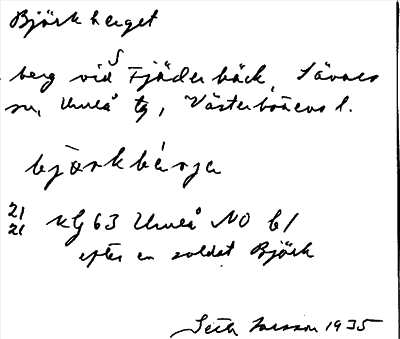 Björkberget
berg vid S Fjäderbäck, Sävars
sn, Umeå tg, Västerbottens l.
björkbérga
21
21 KG 63 Umeå NO b1
efter en soldat Björk
Seth Larsson 1935